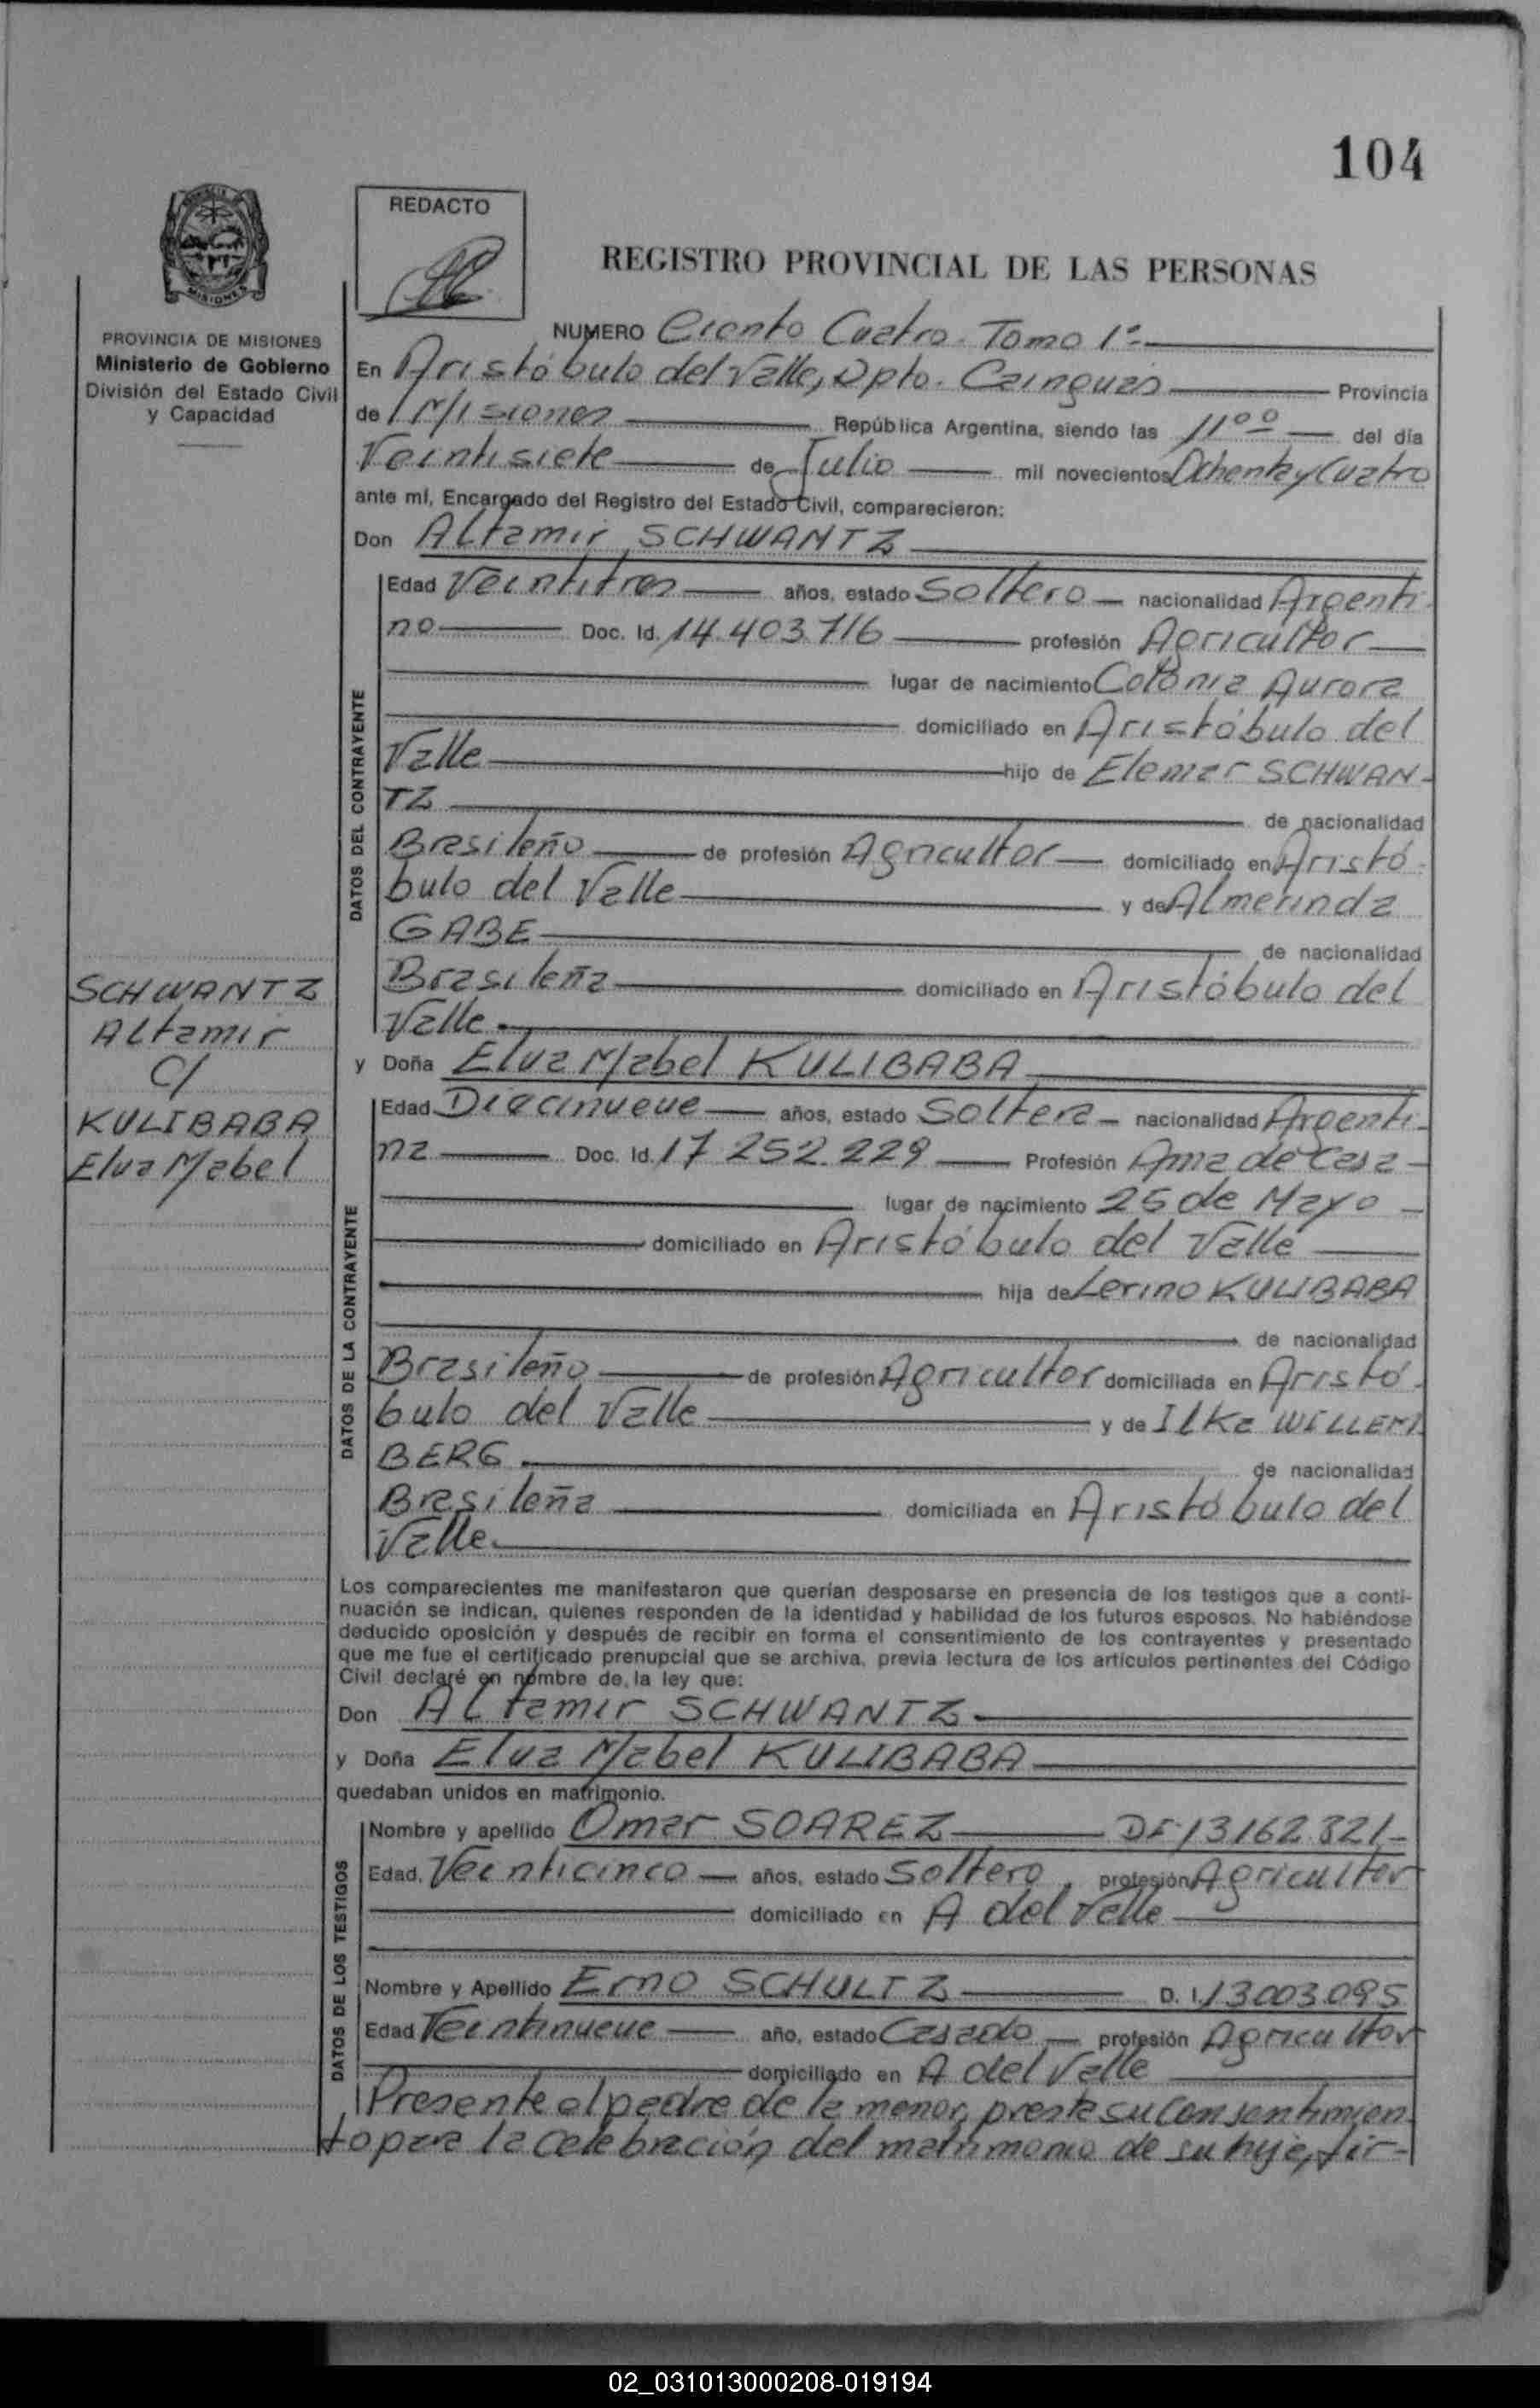 104
REDACTO
REGISTRO PROVINCIAL DE LAS PERSONAS
MISIONES
PROVINCIA DE MISIONES
Ministerio de Gobierno
División del Estado Civil
y Capacidad
NUMERO Ciento Cuatro. Tomo 1º
En Aristóbulo del Valle, Dpto. Cainguás Provincia
de Misiones República Argentina, siendo las 11ºº del día
Veintisiete de Julio mil novecientos Ochenta y Cuatro
ante mí, Encargado del Registro del Estado Civil, comparecieron:
Don Altamir SCHWANTZ
DATOS DEL CONTRAYENTE
Edad Veintitres años, estado Soltero nacionalidad Argenti-
no Doc. Id. 14.403.716 profesión Agricultor
lugar de nacimiento Colonia Aurora
domiciliado en Aristóbulo del
Valle hijo de Elemar SCHWAN-
TZ de nacionalidad
Brasileño de profesión Agricultor domiciliado en Aristó-
bulo del Valle y de Almerinda
GABE de nacionalidad
Brasileña domiciliado en Aristóbulo del
Valle.
SCHWANTZ
Altamir
C/
KULIBABA
Elva Mabel
y Doña Elva Mabel KULIBABA
DATOS DE LA CONTRAYENTE
Edad Diecinueve años, estado Soltera nacionalidad Argenti-
na Doc. Id. 17.252.229 Profesión Ama de Casa
lugar de nacimiento 25 de Mayo
domiciliado en Aristóbulo del Valle
hija de Lerino KULIBABA
de nacionalidad
Brasileño de profesión Agricultor domiciliada en Aristó-
bulo del Valle y de Ilka WILLEM
BERG. de nacionalidad
Brasileña domiciliada en Aristóbulo del
Valle.
Los comparecientes me manifestaron que querían desposarse en presencia de los testigos que a conti-
nuación se indican, quienes responden de la identidad y habilidad de los futuros esposos. No habiéndose
deducido oposición y después de recibir en forma el consentimiento de los contrayentes y presentado
que me fue el certificado prenupcial que se archiva, previa lectura de los artículos pertinentes del Código
Civil declaré en nombre de la ley que:
Don Altamir SCHWANTZ.
y Doña Elva Mabel KULIBABA
quedaban unidos en matrimonio.
DATOS DE LOS TESTIGOS
Nombre y apellido Omar SOAREZ DI 13162.821
Edad. Veinticinco años, estado Soltero profesión Agricultor
domiciliado en A del Valle
Nombre y Apellido Erno SCHULTZ D. I. 13003.095
Edad Veintinueve año, estado Casado profesión Agricultor
domiciliado en A del Valle
Presente el padre de la menor, presta su consentimien
to para la celebración del matrimonio de su hija, fir-
02_031013000208-019194